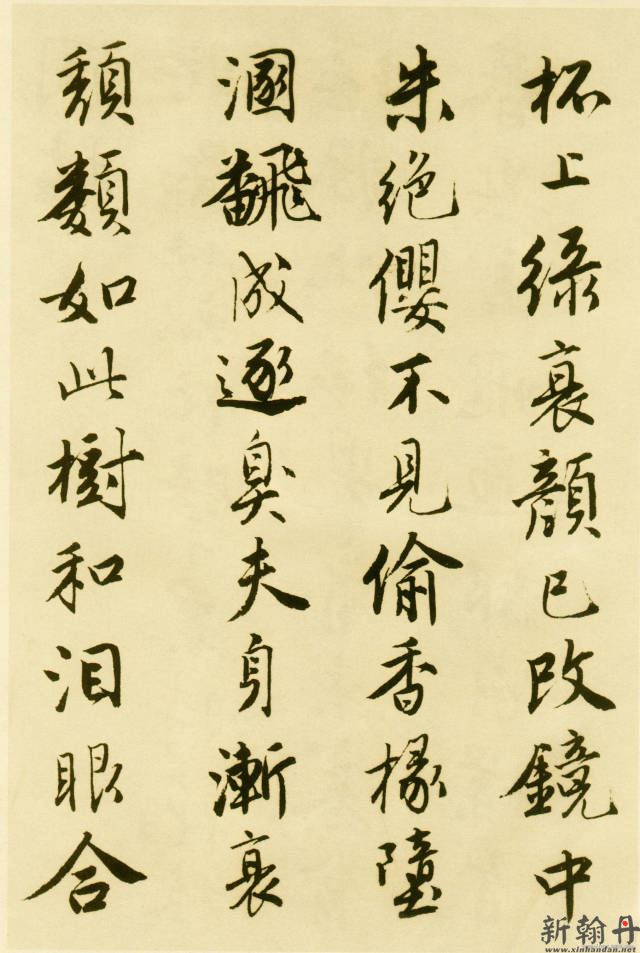 杯上绿衰顔已改鏡中
朱绝纓不見偷香椽墮
溷飜成逐臭夫身漸衰
頹類如此樹和泪眼合
新翰丹
www.xinhandan.net